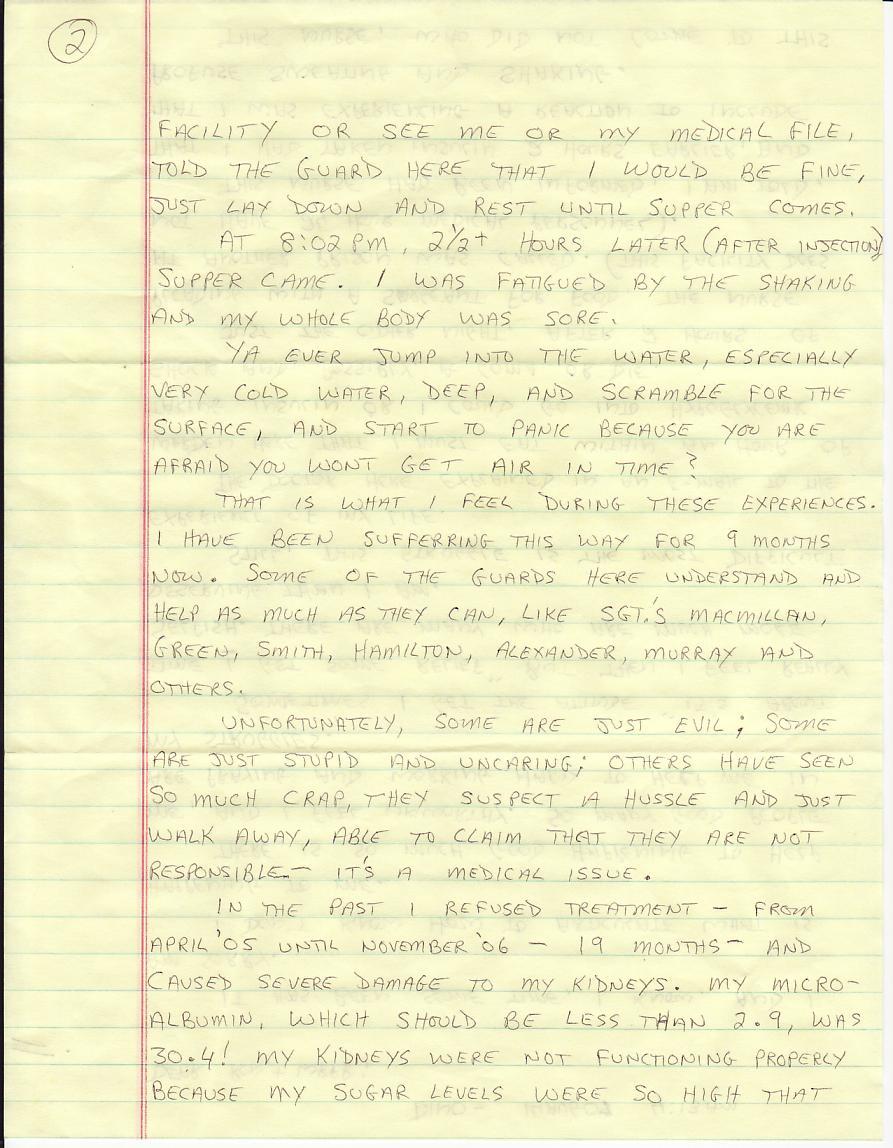 2
FACILITY OR SEE ME OR MY MEDICAL FILE,
TOLD THE GUARD HERE THAT I WOULD BE FINE,
JUST LAY DOWN AND REST UNTIL SUPPER COMES.
AT 8:02 PM, 2½+ HOURS LATER (AFTER INJECTION)
SUPPER CAME. I WAS FATIGUED BY THE SHAKING
AND MY WHOLE BODY WAS SORE.
YA EVER JUMP INTO THE WATER, ESPECIALLY
VERY COLD WATER, DEEP, AND SCRAMBLE FOR THE
SURFACE, AND START TO PANIC BECAUSE YOU ARE
AFRAID YOU WONT GET AIR IN TIME?
THAT IS WHAT I FEEL DURING THESE EXPERIENCES.
I HAVE BEEN SUFFERRING THIS WAY FOR 9 MONTHS
NOW. SOME OF THE GUARDS HERE UNDERSTAND AND
HELP AS MUCH AS THEY CAN, LIKE SGT.'S MACMILLAN,
GREEN, SMITH, HAMILTON, ALEXANDER, MURRAY AND
OTHERS.
UNFORTUNATELY, SOME ARE JUST EVIL; SOME
ARE JUST STUPID AND UNCARING; OTHERS HAVE SEEN
SO MUCH CRAP, THEY SUSPECT A HUSSLE AND JUST
WALK AWAY, ABLE TO CLAIM THAT THEY ARE NOT
RESPONSIBLE - IT'S A MEDICAL ISSUE.
IN THE PAST I REFUSED TREATMENT - FROM
APRIL '05 UNTIL NOVEMBER '06 - 19 MONTHS - AND
CAUSED SEVERE DAMAGE TO MY KIDNEYS. MY MICRO-
ALBUMIN, WHICH SHOULD BE LESS THAN 2.9, WAS
30.4! MY KIDNEYS WERE NOT FUNCTIONING PROPERLY
BECAUSE MY SUGAR LEVELS WERE SO HIGH THAT